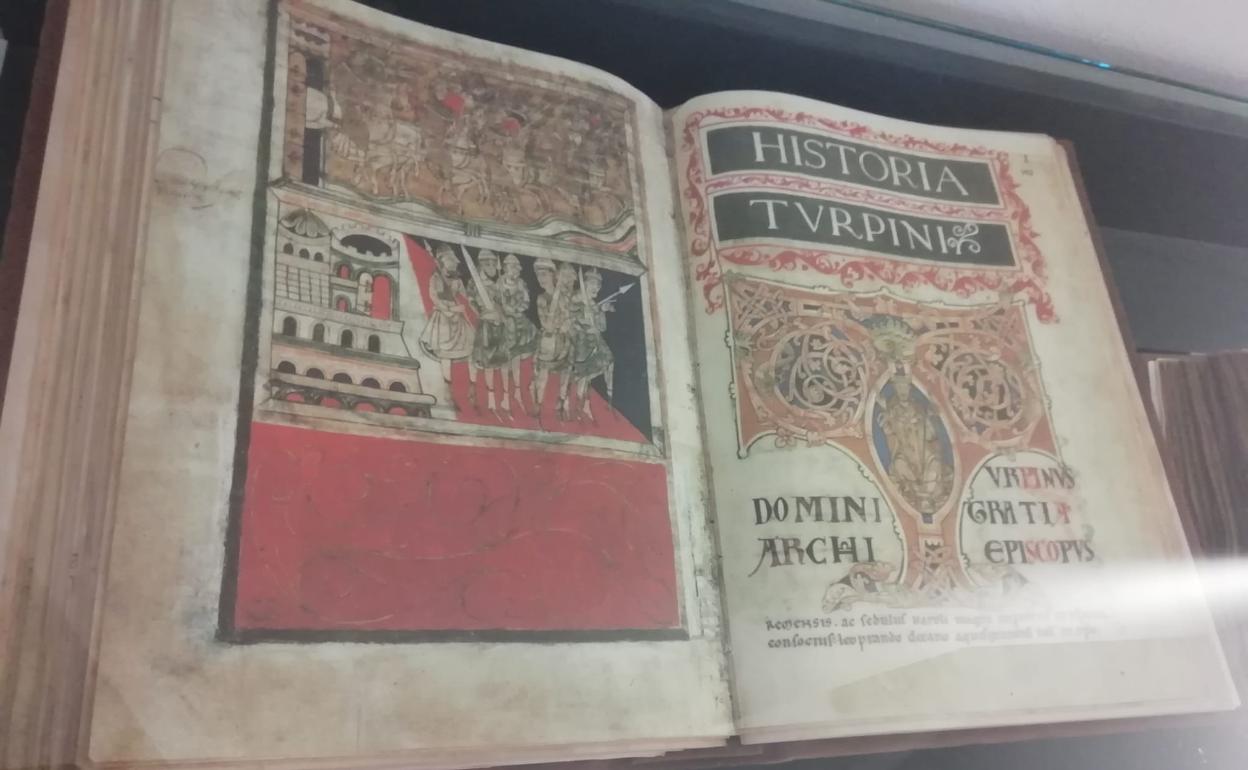 HISTORIA
TVRPINI
VRPINVS
DOMINI GRATIA
ARCHI EPISCOPVS
REMENSIS. ac sedulus karoli magni
consocius. leoprando decano aquisgranensi